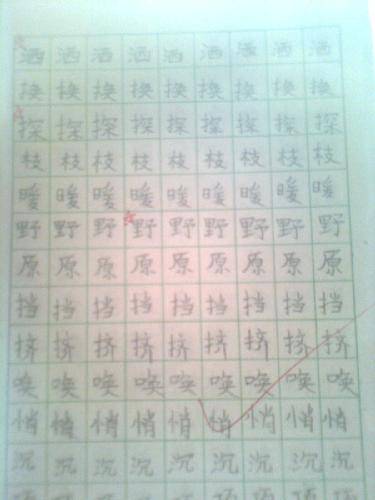 洒洒洒洒洒洒洒洒洒
换换换换换换换换换
探探探探探探探探探
枝枝枝枝枝枝枝枝枝
暖暖暖暖暖暖暖暖暖
野野野野野野野野野
原原原原原原原原原
挡挡挡挡挡挡挡挡挡
挤挤挤挤挤挤挤挤挤
唤唤唤唤唤唤唤唤唤
悄悄悄悄悄悄悄悄悄
沉沉沉沉沉沉沉沉沉